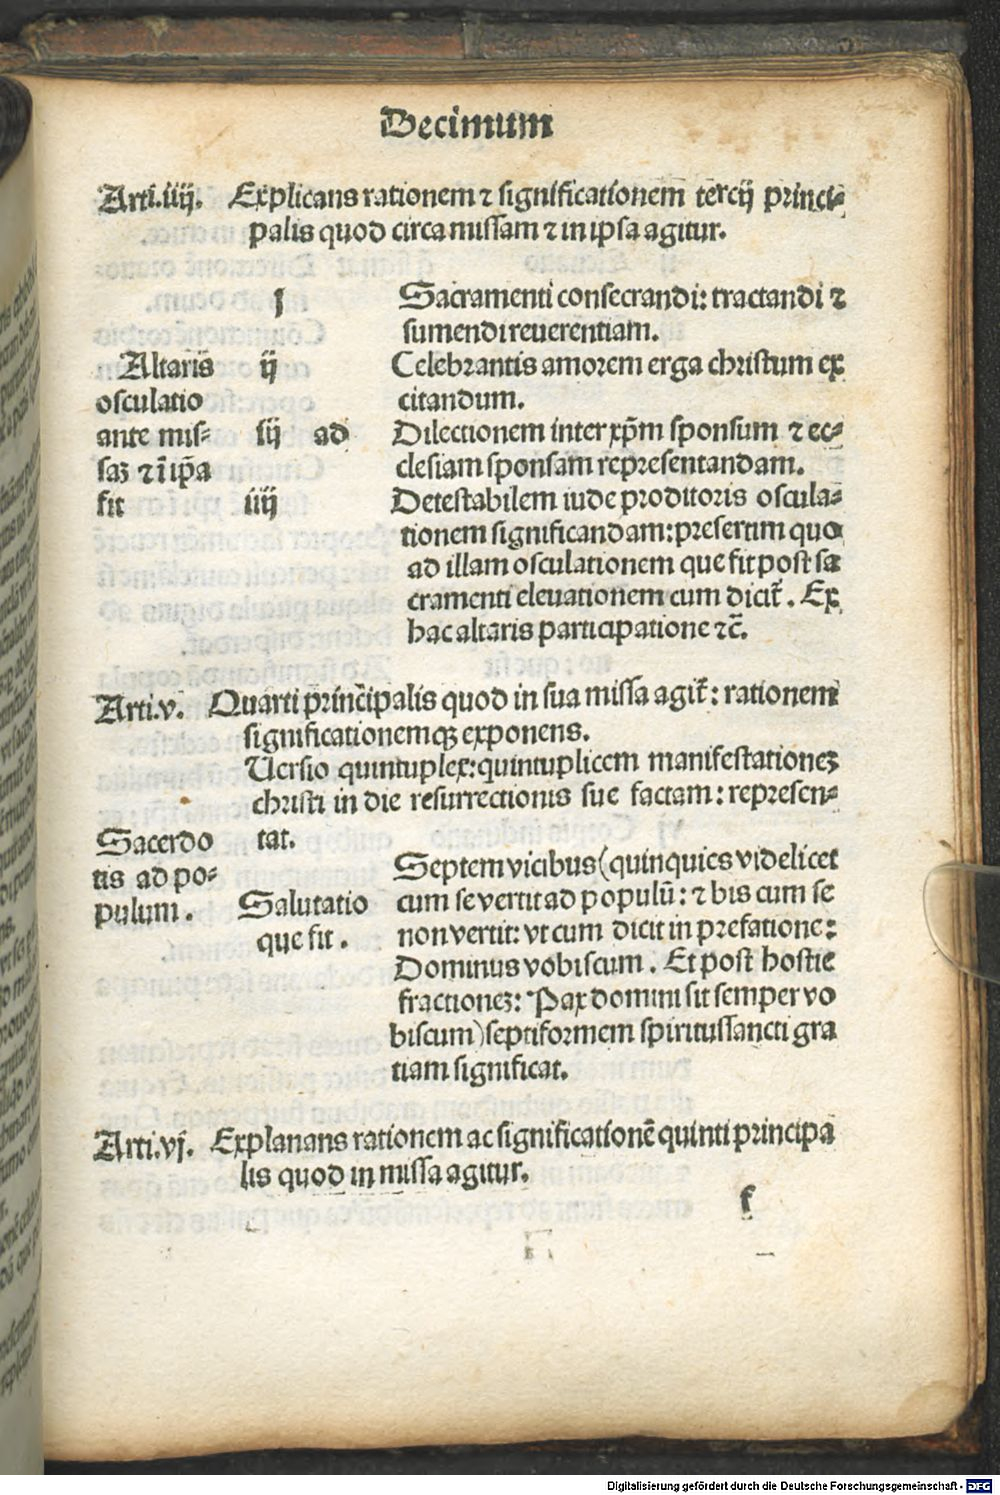 Decimum
Arti.iiij. Explicans rationem ⁊ significationem tercij princi-
palis quod circa missam ⁊ in ipsa agitur.
j Sacramenti consecrandi: tractandi ⁊
sumendi reuerentiam.
Altaris ij Celebrantis amorem erga christum ex
osculatio citandum.
ante mis- iij ad Dilectionem inter xp̄m sponsum ⁊ ec-
saꝫ ⁊ ī ip̄a clesiam sponsam representandam.
fit iiij Detestabilem iude proditoris oscula-
tionem significandam: presertim quo
ad illam osculationem que fit post sa
cramenti eleuationem cum dicit̄. Ex
hac altaris participatione ⁊c̄.
Arti.v. Quarti princ̄ipalis quod in sua missa agit̄: rationem
significationemqꝫ exponens.
Uersio quintuplex: quintuplicem manifestationeꝫ
christi in die resurrectionis sue factam: represen-
Sacerdo tat.
tis ad po- Septem vicibus (quinquies videlicet
pulum. Salutatio cum se vertit ad populū: ⁊ bis cum se
que fit. non vertit: vt cum dicit in prefatione:
Dominus vobiscum. Et post hostie
fractioneꝫ: Pax domini sit semper vo
biscum) septiformem spiritussancti gra
tiam significat.
Arti.vj. Explanans rationem ac significationē quinti principa
lis quod in missa agitur.
f
Digitalisierung gefördert durch die Deutsche Forschungsgemeinschaft - DFG